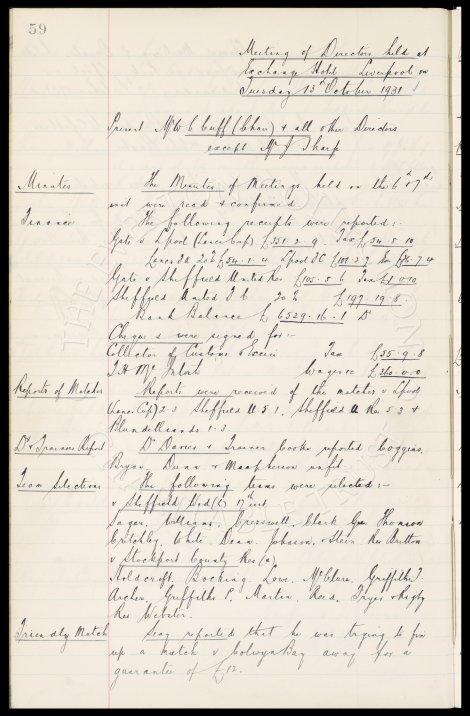 59
Meeting of Directors held at
Exchange Hotel Liverpool on
Tuesday 13th October 1931
Present Mr W C Cuff (Chair) & all other Directors
except Mr J Sharp
Minutes The Minutes of Meetings held on the 6th & 7th
inst were read & confirmed.
Finance The following receipts were reported:-
Gate v L'pool (Lancs Cup) £351. 2. 9. Tax £54. 5. 10
Lancs 20% £54. 1. 4 L'pool FC £101. 2. 7
Gate v Sheffield United Res £105. 5. 6 Tax
Sheffield United F C 20% £197. 19. 8
Bank Balance £6529. 16. 1 Dr
Cheques were signed for:-
Collector of Customs & Excise Tax £55. 9. 8
T. H. McIntosh Wages £360. 0. 0
Reports of Matches Reports were received of the matches v L'pool
(Lancs Cup) 2-3 Sheffield U 5. 1. Sheffield U Res 5 3 &
Blundellsands 1-3.
Dr & Trainers Report Dr Davies & Trainer Cooke reported Coggins,
Bryan, Dunn & Macpherson unfit.
Team Selections The following teams were selected:-
v Sheffield Wed (h) 17th inst
Sagar, Williams, Cresswell, Clark Geo Thomson
Critchley, White, Dean, Johnson, & Stein Res Britton
v Stockport County Res (a)
Holdcroft, Bocking, Lowe, McClure, Griffiths T.
Archer, Griffiths P. Martin, Reed, Fryer & Rigby
Res Webster.
Friendly Match Secy reported that he was trying to fix
up a match v Colwyn Bay away for a
guarantee of £12.